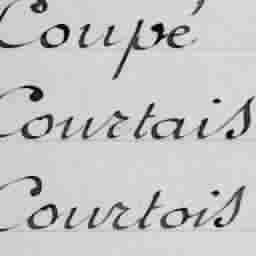 Coupé
Courtais
Courtois